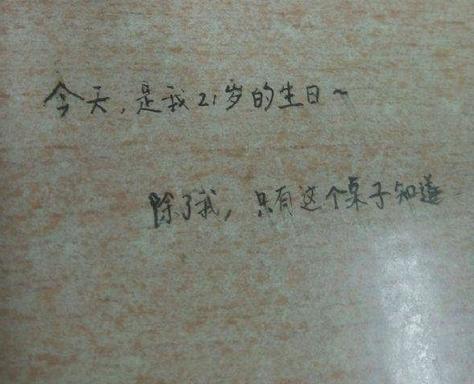 今天,是我21岁的生日~
除了我,只有这个桌子知道